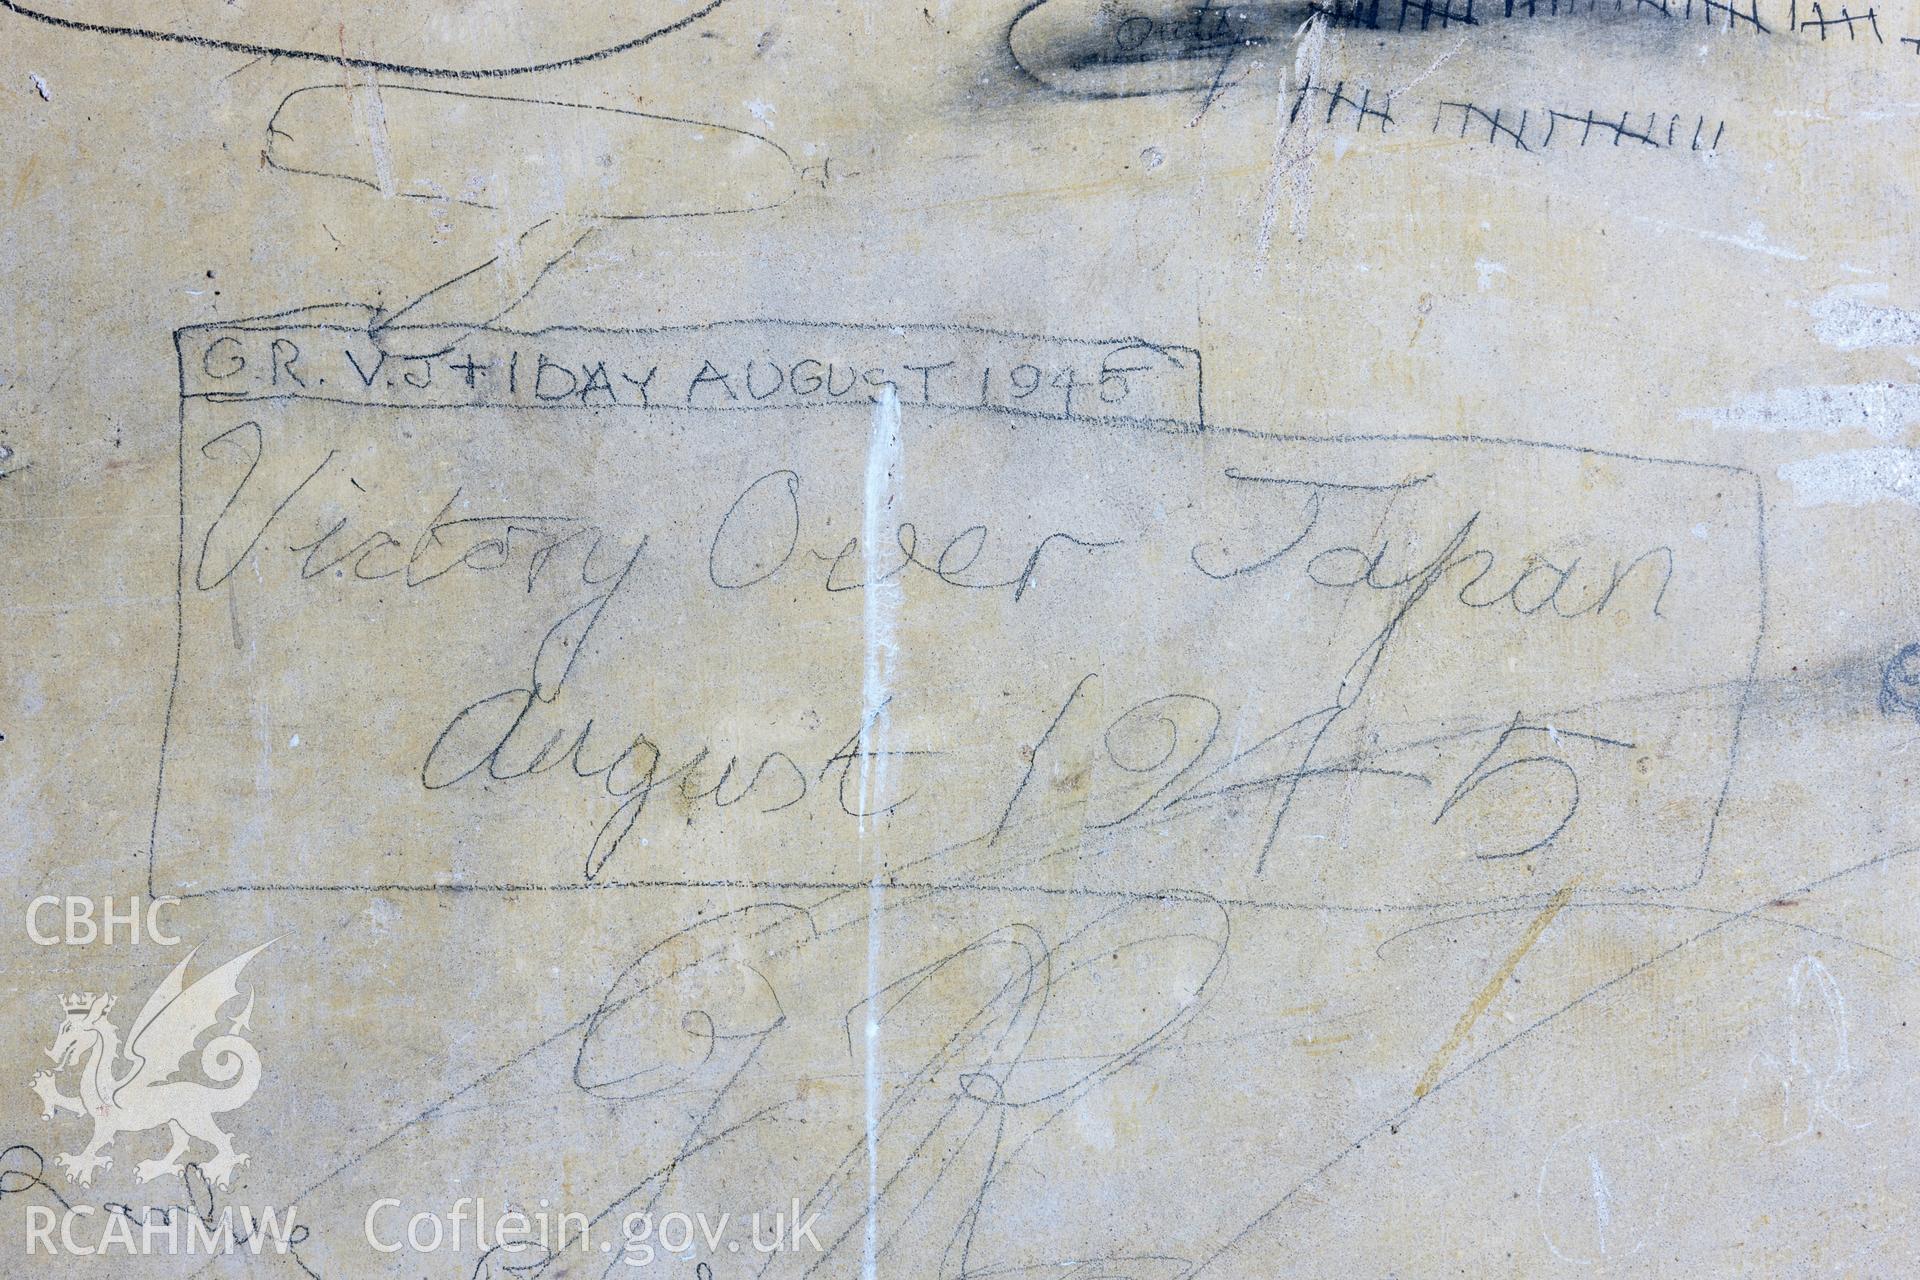 Outy
G.R. V.J+1 DAY AUGUST 1945
Victory Over Japan
August 1945
CBHC
RCAHMW Coflein.gov.uk